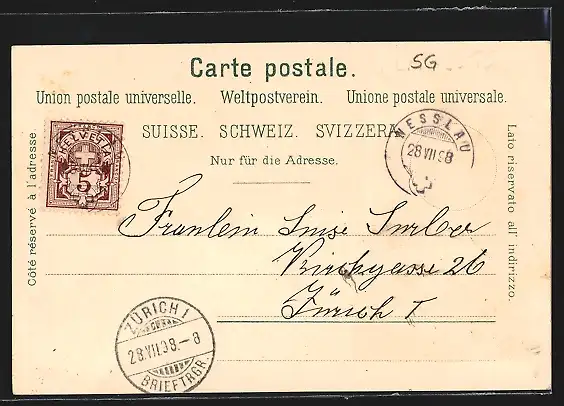 SG
Carte postale.
Union postale universelle. Weltpostverein. Unione postale universale.
SUISSE. SCHWEIZ. SVIZZERA.
Nur für die Adresse.
Côté réservé à l'adresse.
Lato riservato all' indirizzo.
HELVETIA
5
NESSLAU
28 VII 98
Fraulein Luise Surber
Kirchgasse 26
Zürich I
ZÜRICH 1
28.VII.98.-8
BRIEFTRGR.